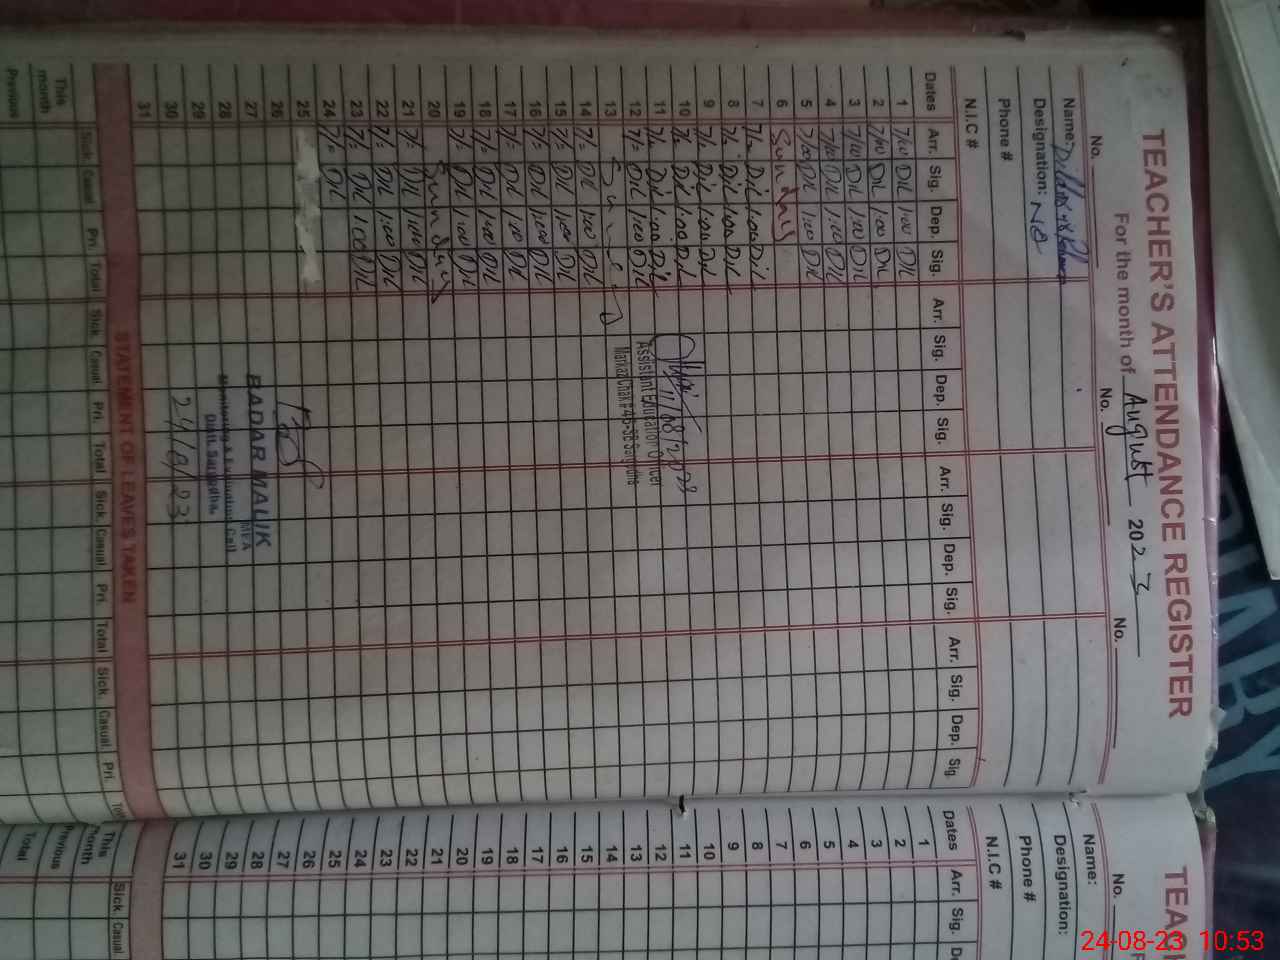 TEACHER'S ATTENDANCE REGISTER
For the month of August 2023
No. No. No.
Name:
Designation:
Phone #
N.I.C #
Dates Arr. Sig. Dep. Sig. Arr. Sig. Dep. Sig. Arr. Sig. Dep. Sig. Arr. Sig. Dep. Sig.
1 7/00 Dil 1:00 Dil
2 7/00 Dil 1:00 Dil
3 7/00 Dil 1:00 Dil
4 7/00 Dil 1:00 Dil
5 7/00 Dil 1:00 Dil
6 Sunday
7 Dil 1:00 Dil
8 Dil 1:00 Dil
9 Dil 1:00 Dil
10 Dil 1:00 Dil
11 Dil 1:00 Dil
12 7/= Dil 1:00 Dil
13 Sunday
14 7/= Dil 1:00 Dil
15 7/= Dil 1:00 Dil
16 7/= Dil 1:00 Dil
17 7/= Dil 1:00 Dil
18 7/= Dil 1:00 Dil
19 7/= Dil 1:00 Dil
20 Sunday
21 7/= Dil 1:00 Dil
22 7/= Dil 1:00 Dil
23 7/= Dil 1:00 Dil
24 7/= Dil
25
26
27
28
29
30
31
11/08/2023
Assistant Education Officer
Markaz Chak# 46-SB Sargodha
BADAR MALIK
MEA
Monitoring & Evaluation Cell
Distt. Sargodha.
24/8/23
STATEMENT OF LEAVES TAKEN
Sick. Casual Pri. Total Sick. Casual. Pri. Total Sick. Casual. Pri. Total Sick. Casual. Pri.
This month
Previous
TEAC
No.
Name:
Designation:
Phone #
N.I.C #
Dates Arr. Sig.
1
2
3
4
5
6
7
8
9
10
11
12
13
14
15
16
17
18
19
20
21
22
23
24
25
26
27
28
29
30
31
Sick. Casual
This month
Previous
Total
24-08-23 10:53